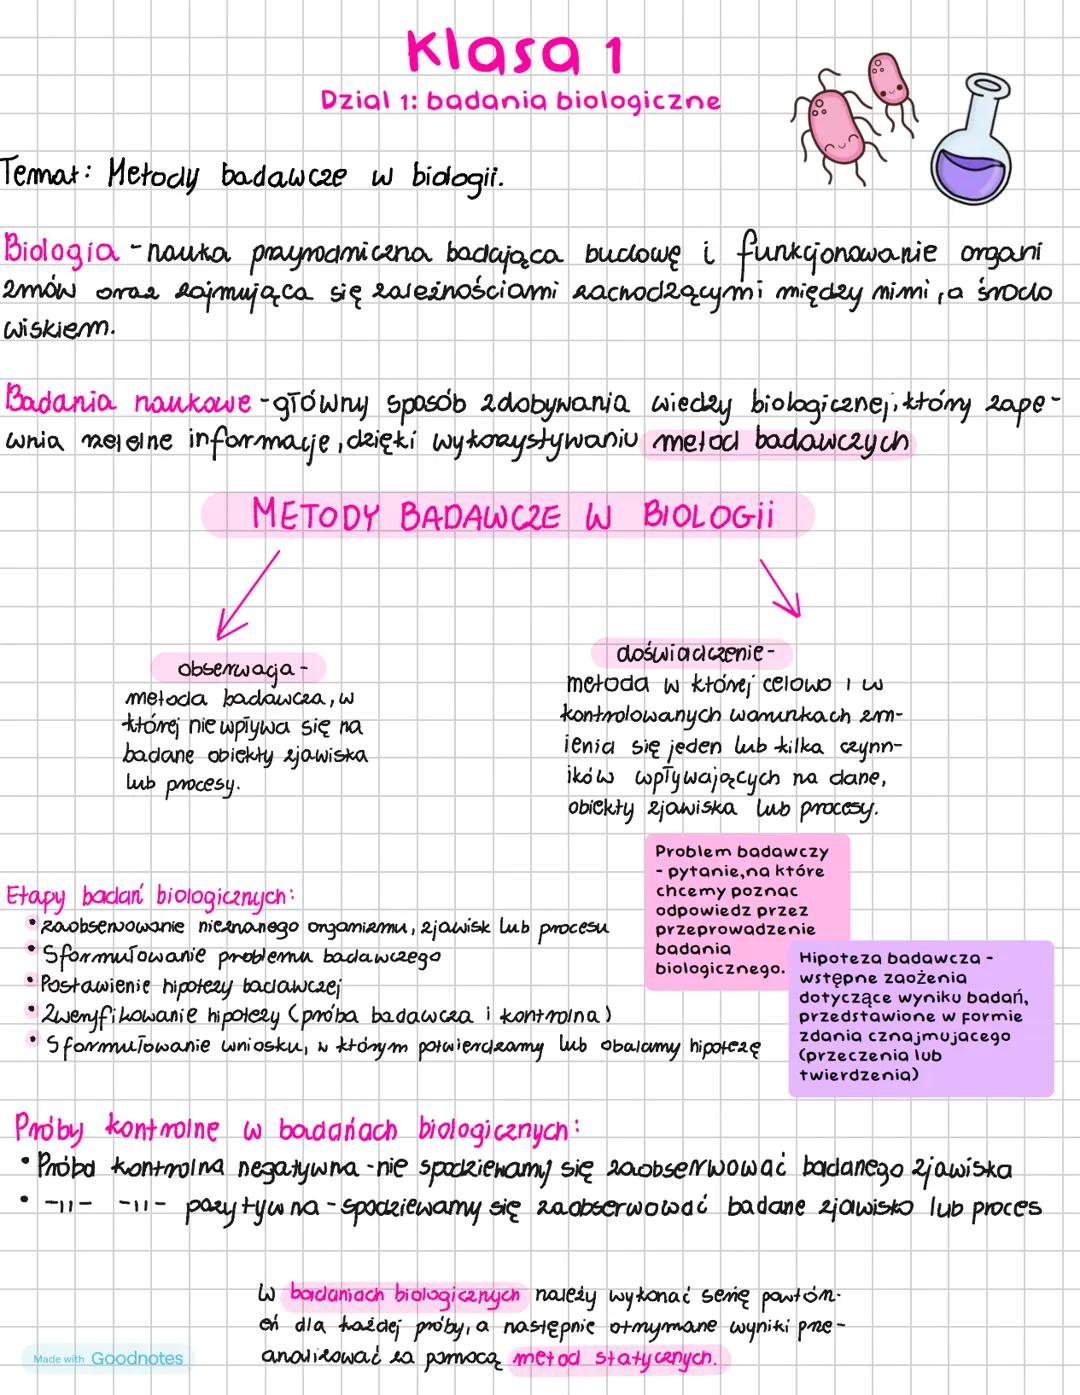 Klasa 1
Dział 1: badania biologiczne
Temat: Metody badawcze w biologii.
Biologia - nauka przyrodniczna badająca budowę i funkcjonowanie organi
zmów oraz zajmująca się zależnościami zachodzącymi między nimi, a środo
wiskiem.
Badania naukowe - główny sposób zdobywania wiedzy biologicznej, który zape-
wnia rzetelne informacje, dzięki wykorzystywaniu metod badawczych
METODY BADAWCZE W BIOLOGII
obserwacja -
metoda badawcza, w
której nie wpływa się na
badane obiekty zjawiska
lub procesy.
doświadczenie -
metoda w której celowo i w
kontrolowanych warunkach zm-
ienia się jeden lub kilka czynn-
ików wpływających na dane,
obiekty zjawiska lub procesy.
Problem badawczy
- pytanie,na które
chcemy poznac
odpowiedz przez
przeprowadzenie
badania
biologicznego.
Hipoteza badawcza -
wstępne zaożenia
dotyczące wyniku badań,
przedstawione w formie
zdania cznajmującego
(przeczenia lub
twierdzenia)
Etapy badań biologicznych:
• zaobserwowanie nieznanego organizmu, zjawisk lub procesu
• Sformułowanie problemu badawczego
• Postawienie hipotezy badawczej
• Zweryfikowanie hipotezy (próba badawcza i kontrolna)
• Sformułowanie wniosku, w którym potwierdzamy lub obalamy hipotezę
Próby kontrolne w badaniach biologicznych:
• Próba kontrolna negatywna - nie spodziewamy się zaobserwować badanego zjawiska
• -11- -11- pozytywna - spodziewamy się zaobserwować badane zjawisko lub proces
W badaniach biologicznych należy wykonać serię powtórz-
eń dla każdej próby, a następnie otrzymane wyniki prze-
analizować za pomocą metod statycznych.
Made with Goodnotes